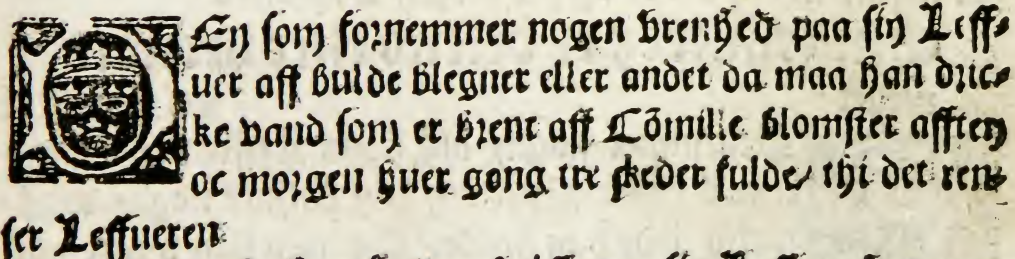 DEn som fornemmer nogen brenhed paa sin Leff⸗
uer aff bulde blegner eller andet da maa han dric⸗
ke vand som er brent aff Cõmille blomster afften
oc morgen huer gong tre skeder fulde/ thi det ren⸗
ser Leffueren